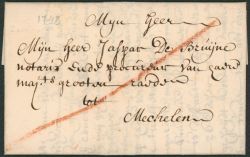 1748
Myn Heer
Mijn Heer Jaspar De Bruijne
notaris Ende procureur van haere
maj:ts grooten raede
tot
Mechelen